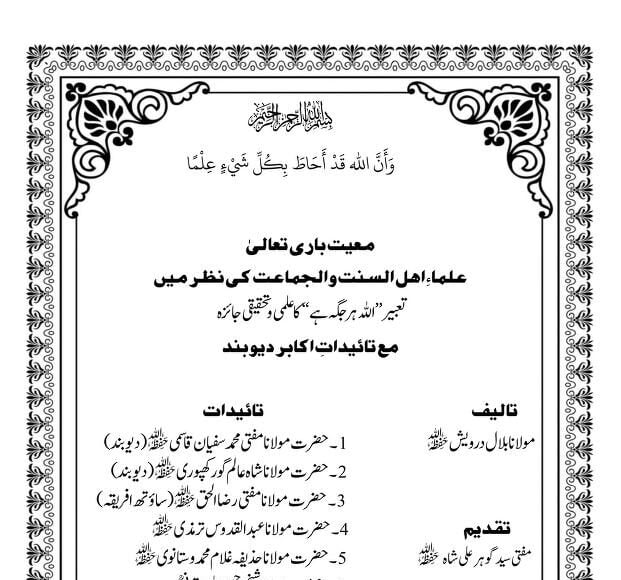 بسم اللہ الرحمن الرحیم
وَأَنَّ الله قَدْ أَحَاطَ بِكُلِّ شَيْءٍ عِلْمًا
معیت باری تعالیٰ
علماءِ اھل السنت والجماعت کی نظر میں
تعبیر ”اللہ ہر جگہ ہے“ کا علمی و تحقیقی جائزہ
مع تائیداتِ اکابر دیوبند
تالیف
مولانا بلال درویش حفظہ اللہ
تقدیم
مفتی سید گوہر علی شاہ حفظہ اللہ
تائیدات
1۔ حضرت مولانا مفتی محمد سفیان قاسمی حفظہ اللہ (دیوبند)
2۔ حضرت مولانا شاہ عالم گورکھپوری حفظہ اللہ (دیوبند)
3۔ حضرت مولانا مفتی رضاء الحق حفظہ اللہ (ساؤتھ افریقہ)
4۔ حضرت مولانا عبدالقدوس ترمذی حفظہ اللہ
5۔ حضرت مولانا حذیفہ غلام محمد وستانوی حفظہ اللہ